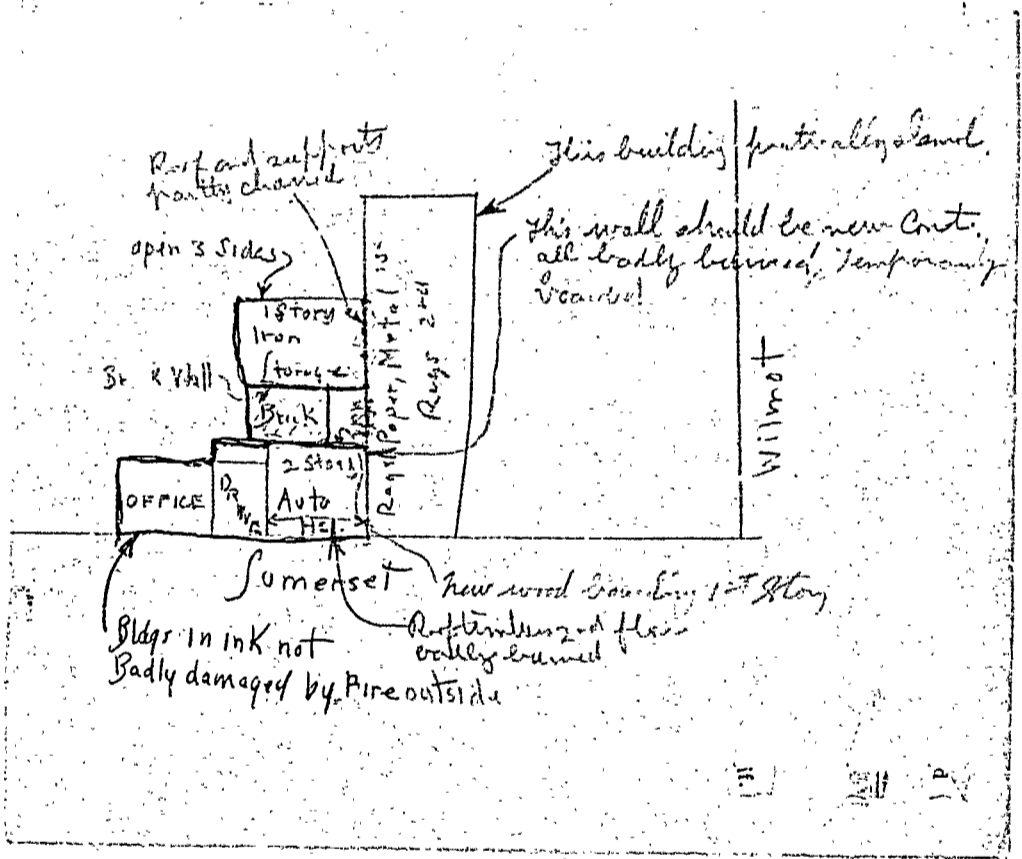 Roof and supports
partly charred
This building practically demol.
This wall should be new Const.
all badly burned, Temporarily
boarded
open 3 Sides
1 Story
Iron
Storage
Brick
Rags, Paper, Metal 1st
Rags 2nd
Wilmot
2 Story
Auto
OFFICE
DRIVE
Somerset
new wood boarding 1st Story
Roof timbers 2nd floor
badly burned
Bldgs in ink not
Badly damaged by Fire outside